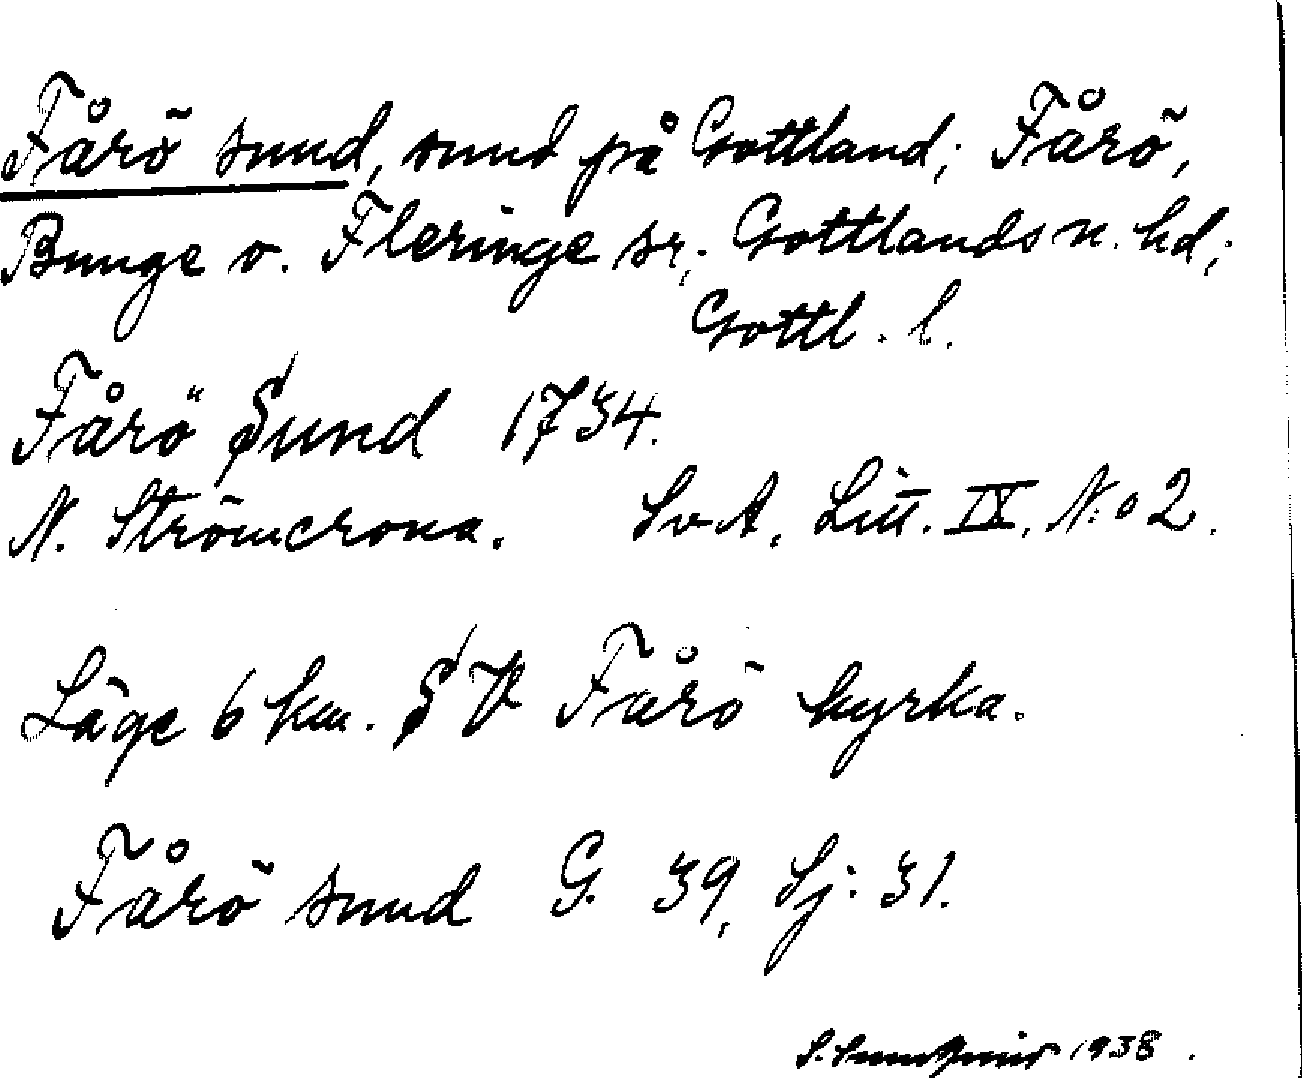 Fårö sund, sund på Gottland; Fårö,
Bunge o. Fleringe sr,; Gottlands n. hd;
Gottl. l.
Fårö Sund 1734.
N. Strömcrona. SvA, Litt. IX, N:o 2.
Läge 6 km. SV Fårö kyrka.
Fårö sund G. 39, Sj: 31.
S. 1938.